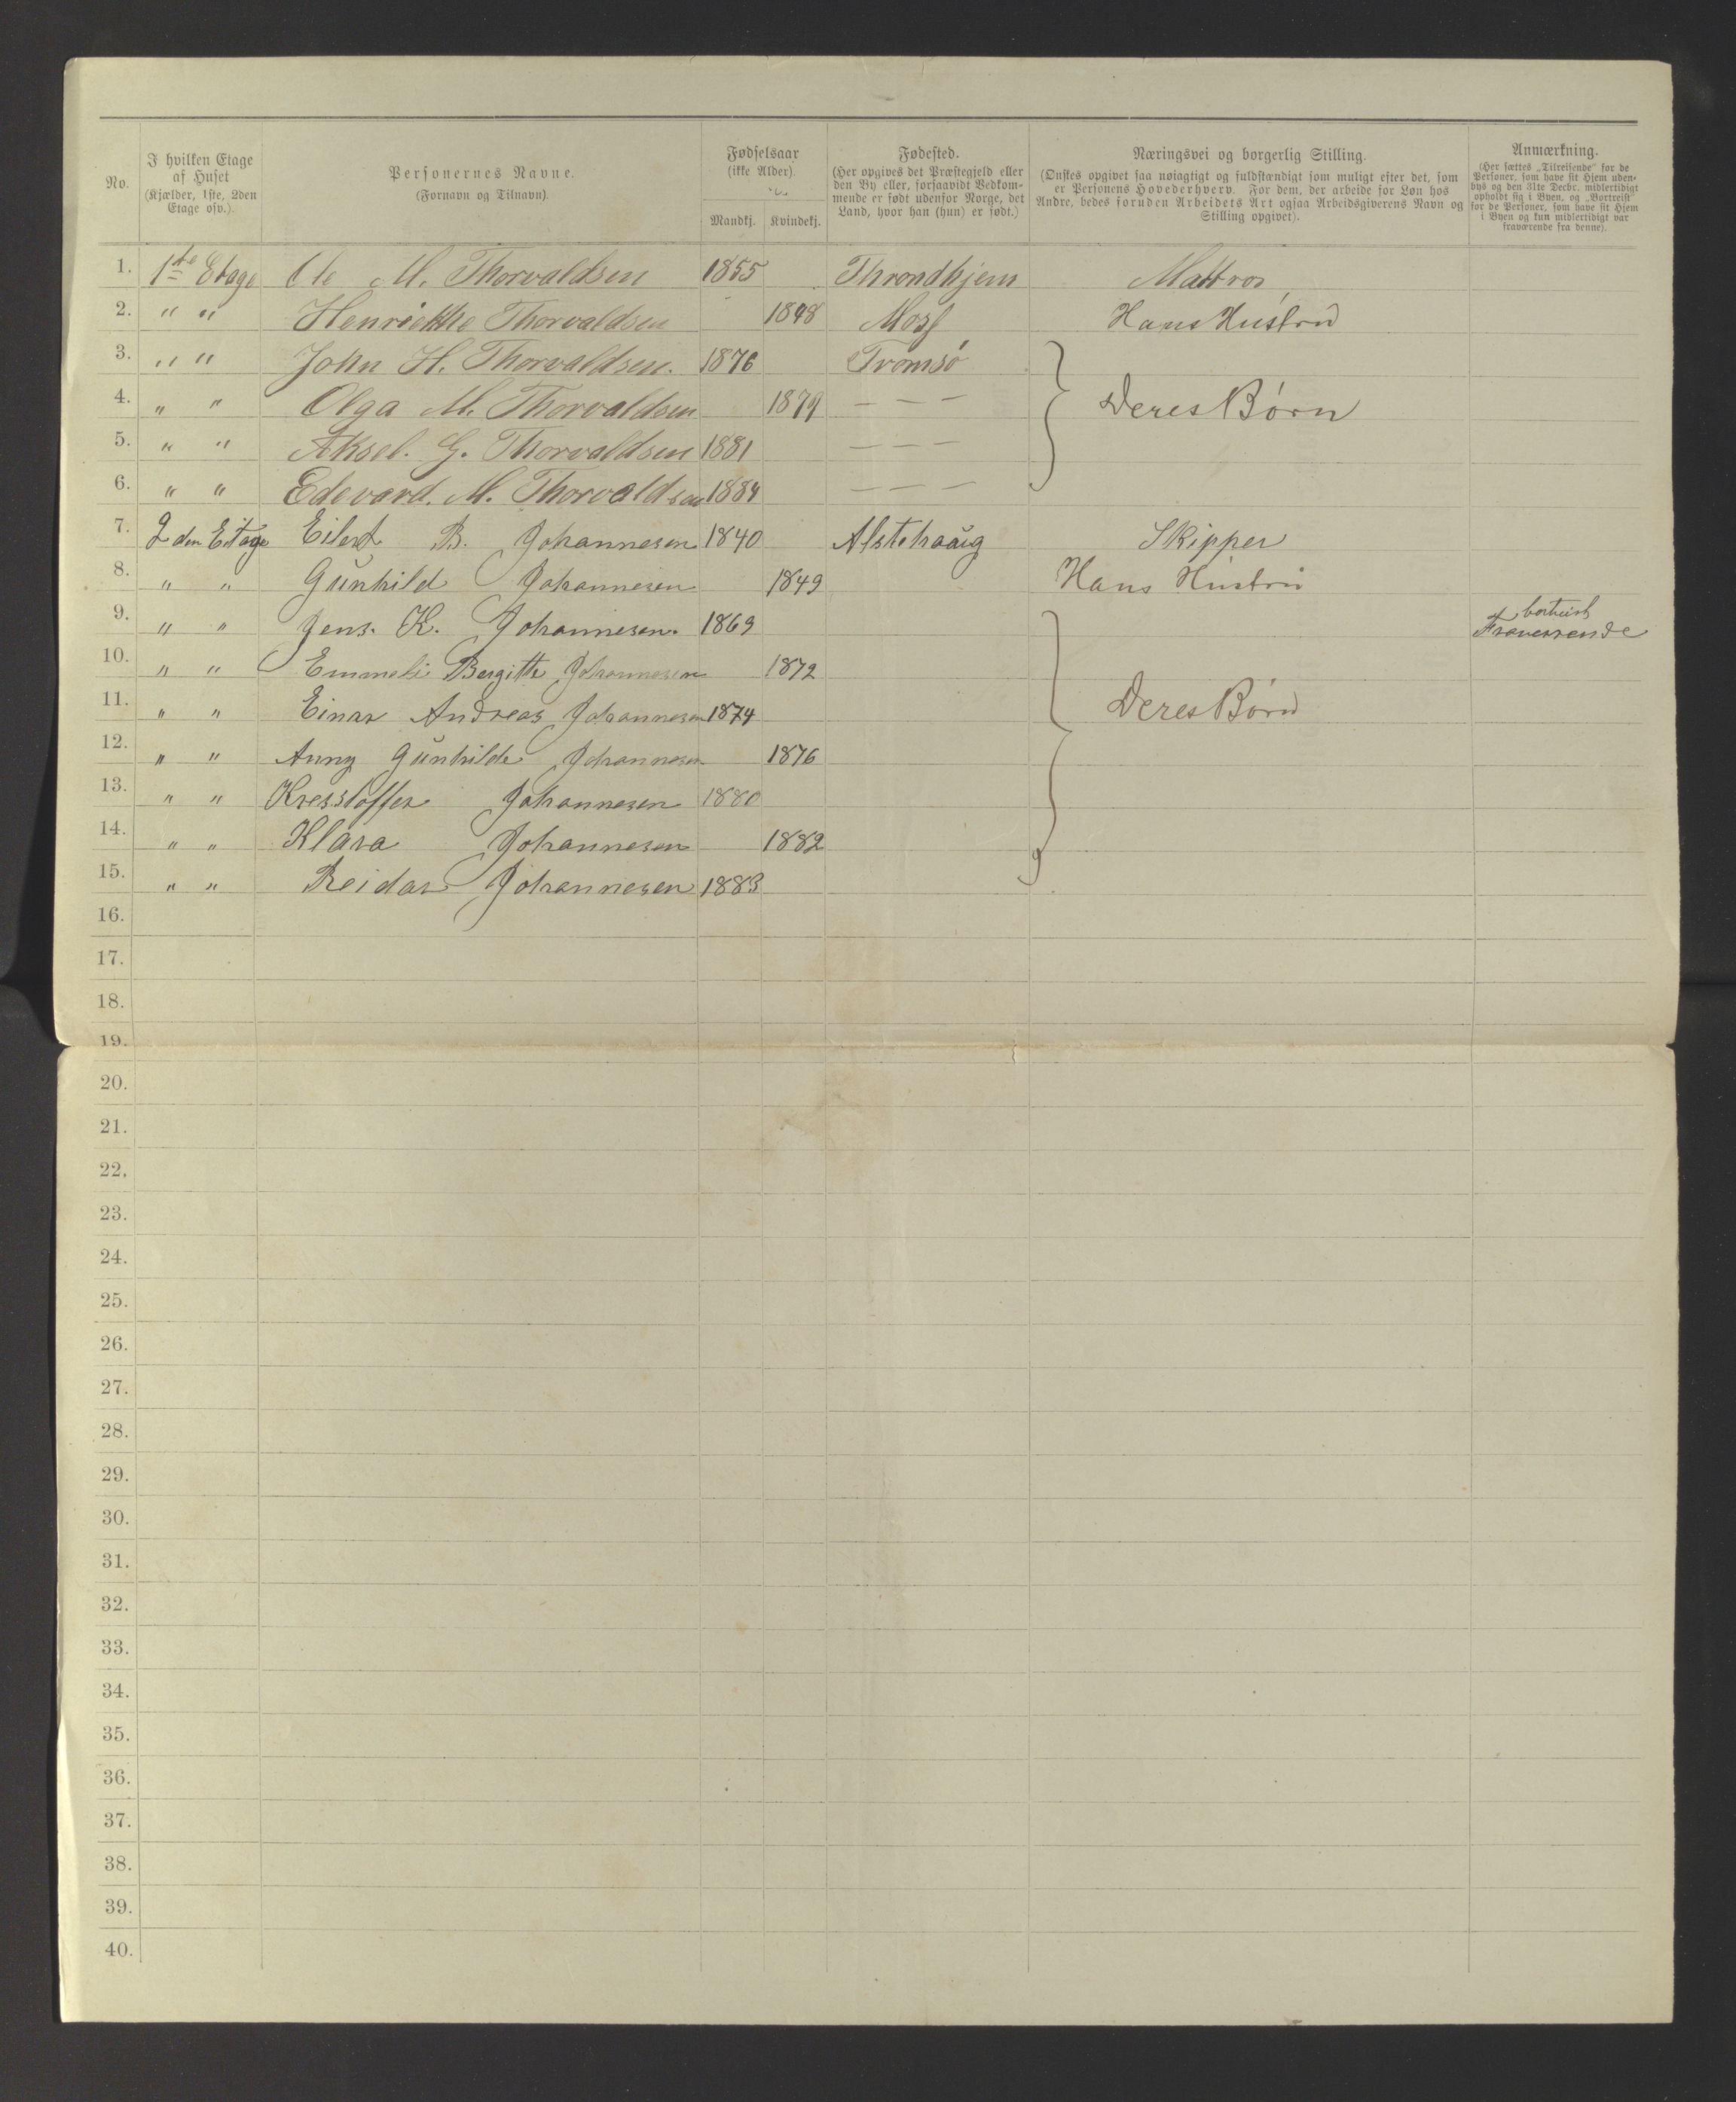 No.
I hvilken Etage
af Huset
(Kjælder, 1ste, 2den
Etage osv.).
Personernes Navne.
(Fornavn og Tilnavn).
Fødselsaar
(ikke Alder).
Mandkj. Kvindekj.
Fødested.
(Her opgives det Præstegjeld eller
den By eller, forsaavidt Vedkom-
mende er født udenfor Norge, det
Land, hvor han (hun) er født.)
Næringsvei og borgerlig Stilling.
(Ønskes opgivet saa nøiagtigt og fuldstændigt som muligt efter det, som
er Personens Hovederhverv. For dem, der arbeide for Løn hos
Andre, bedes foruden Arbeidets Art ogsaa Arbeidsgiverens Navn og
Stilling opgivet).
Anmærkning.
(Her sættes „Tilreisende“ for de
Personer, som have sit Hjem uden-
bys og den 31te Decbr. midlertidigt
opholdt sig i Byen, og „Bortreist“
for de Personer, som have sit Hjem
i Byen og kun midlertidigt var
fraværende fra denne).
1. 1ste Etage Ole M. Thorvaldsen 1855 Throndhjem Mattros
2. " " Henriethe Thorvaldsen 1848 Moss Hans Hustru
3. " " John H. Thorvaldsen. 1876 Tromsö
4. " " Olga M. Thorvaldsen 1879 — — — Deres Børn
5. " " Aksel. G. Thorvaldsen 1881 — — —
6. " " Edevard. M. Thorvaldsen 1884 — — —
7. 2den Etage Eilert B. Johannesen 1840 Alstehaŭg Skipper
8. " " Gŭnhild Johannesen 1849 Hans Hŭstrŭ
9. " " Jens. K. Johannesen. 1869 bortreist
Fraverende
10. " " Emmeli Bergitte Johannesen 1872
11. " " Einar Andreas Johannesen 1874 Deres Børn
12. " " Anny Gŭnhilde Johannesen 1876
13. " " Kresstoffer Johannesen 1880
14. " " Klara Johannesen 1882
15. " " Reidar Johannesen 1883
16.
17.
18.
19.
20.
21.
22.
23.
24.
25.
26.
27.
28.
29.
30.
31.
32.
33.
34.
35.
36.
37.
38.
39.
40.